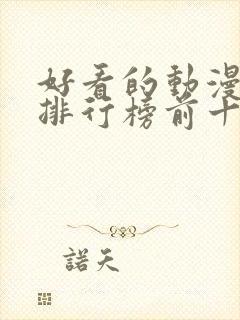 好看的動漫
排行榜前十
諾天